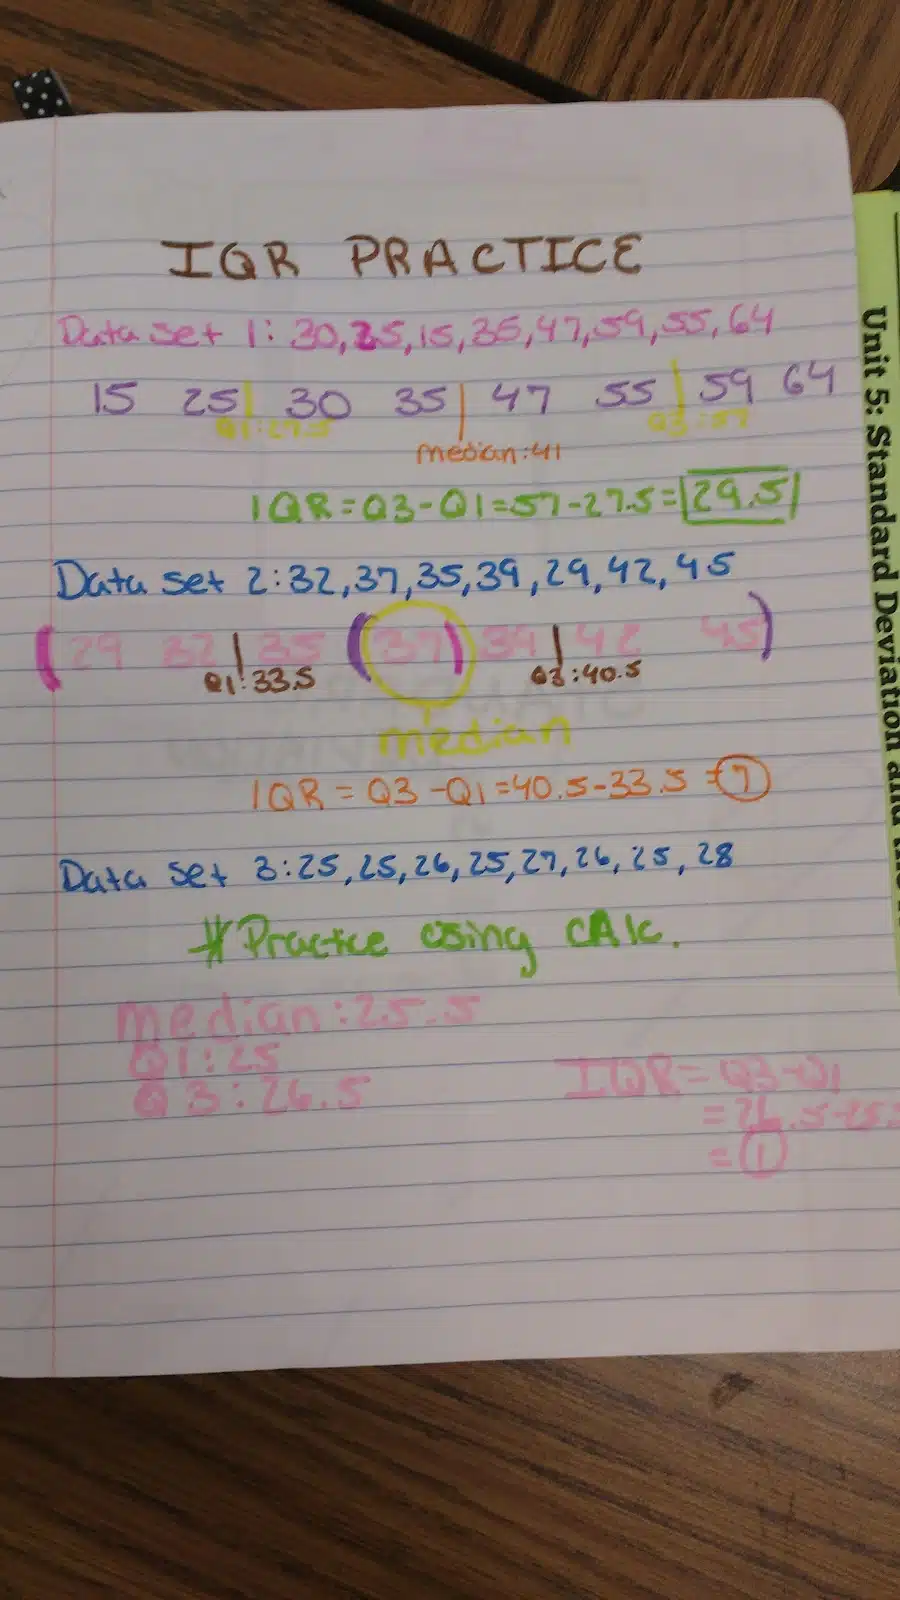 IQR PRACTICE
Data set 1: 30, 25, 15, 35, 47, 59, 55, 64
15 25 30 35 47 55 59 64
Q1:27.5 Q3:57
median:41
IQR=Q3-Q1=57-27.5=29.5
Data set 2:32,37,35,39,29,42,45
(29 32 35 (37) 39 42 45)
Q1:33.5 Q3:40.5
median
IQR = Q3-Q1=40.5-33.5=7
Data set 3:25,25,26,25,27,26,25,28
*Practice using cAlc.
median:25.5
Q1:25
Q3:26.5
IQR=Q3-Q1
=26.5-25.5
=1
Unit 5: Standard Deviation and